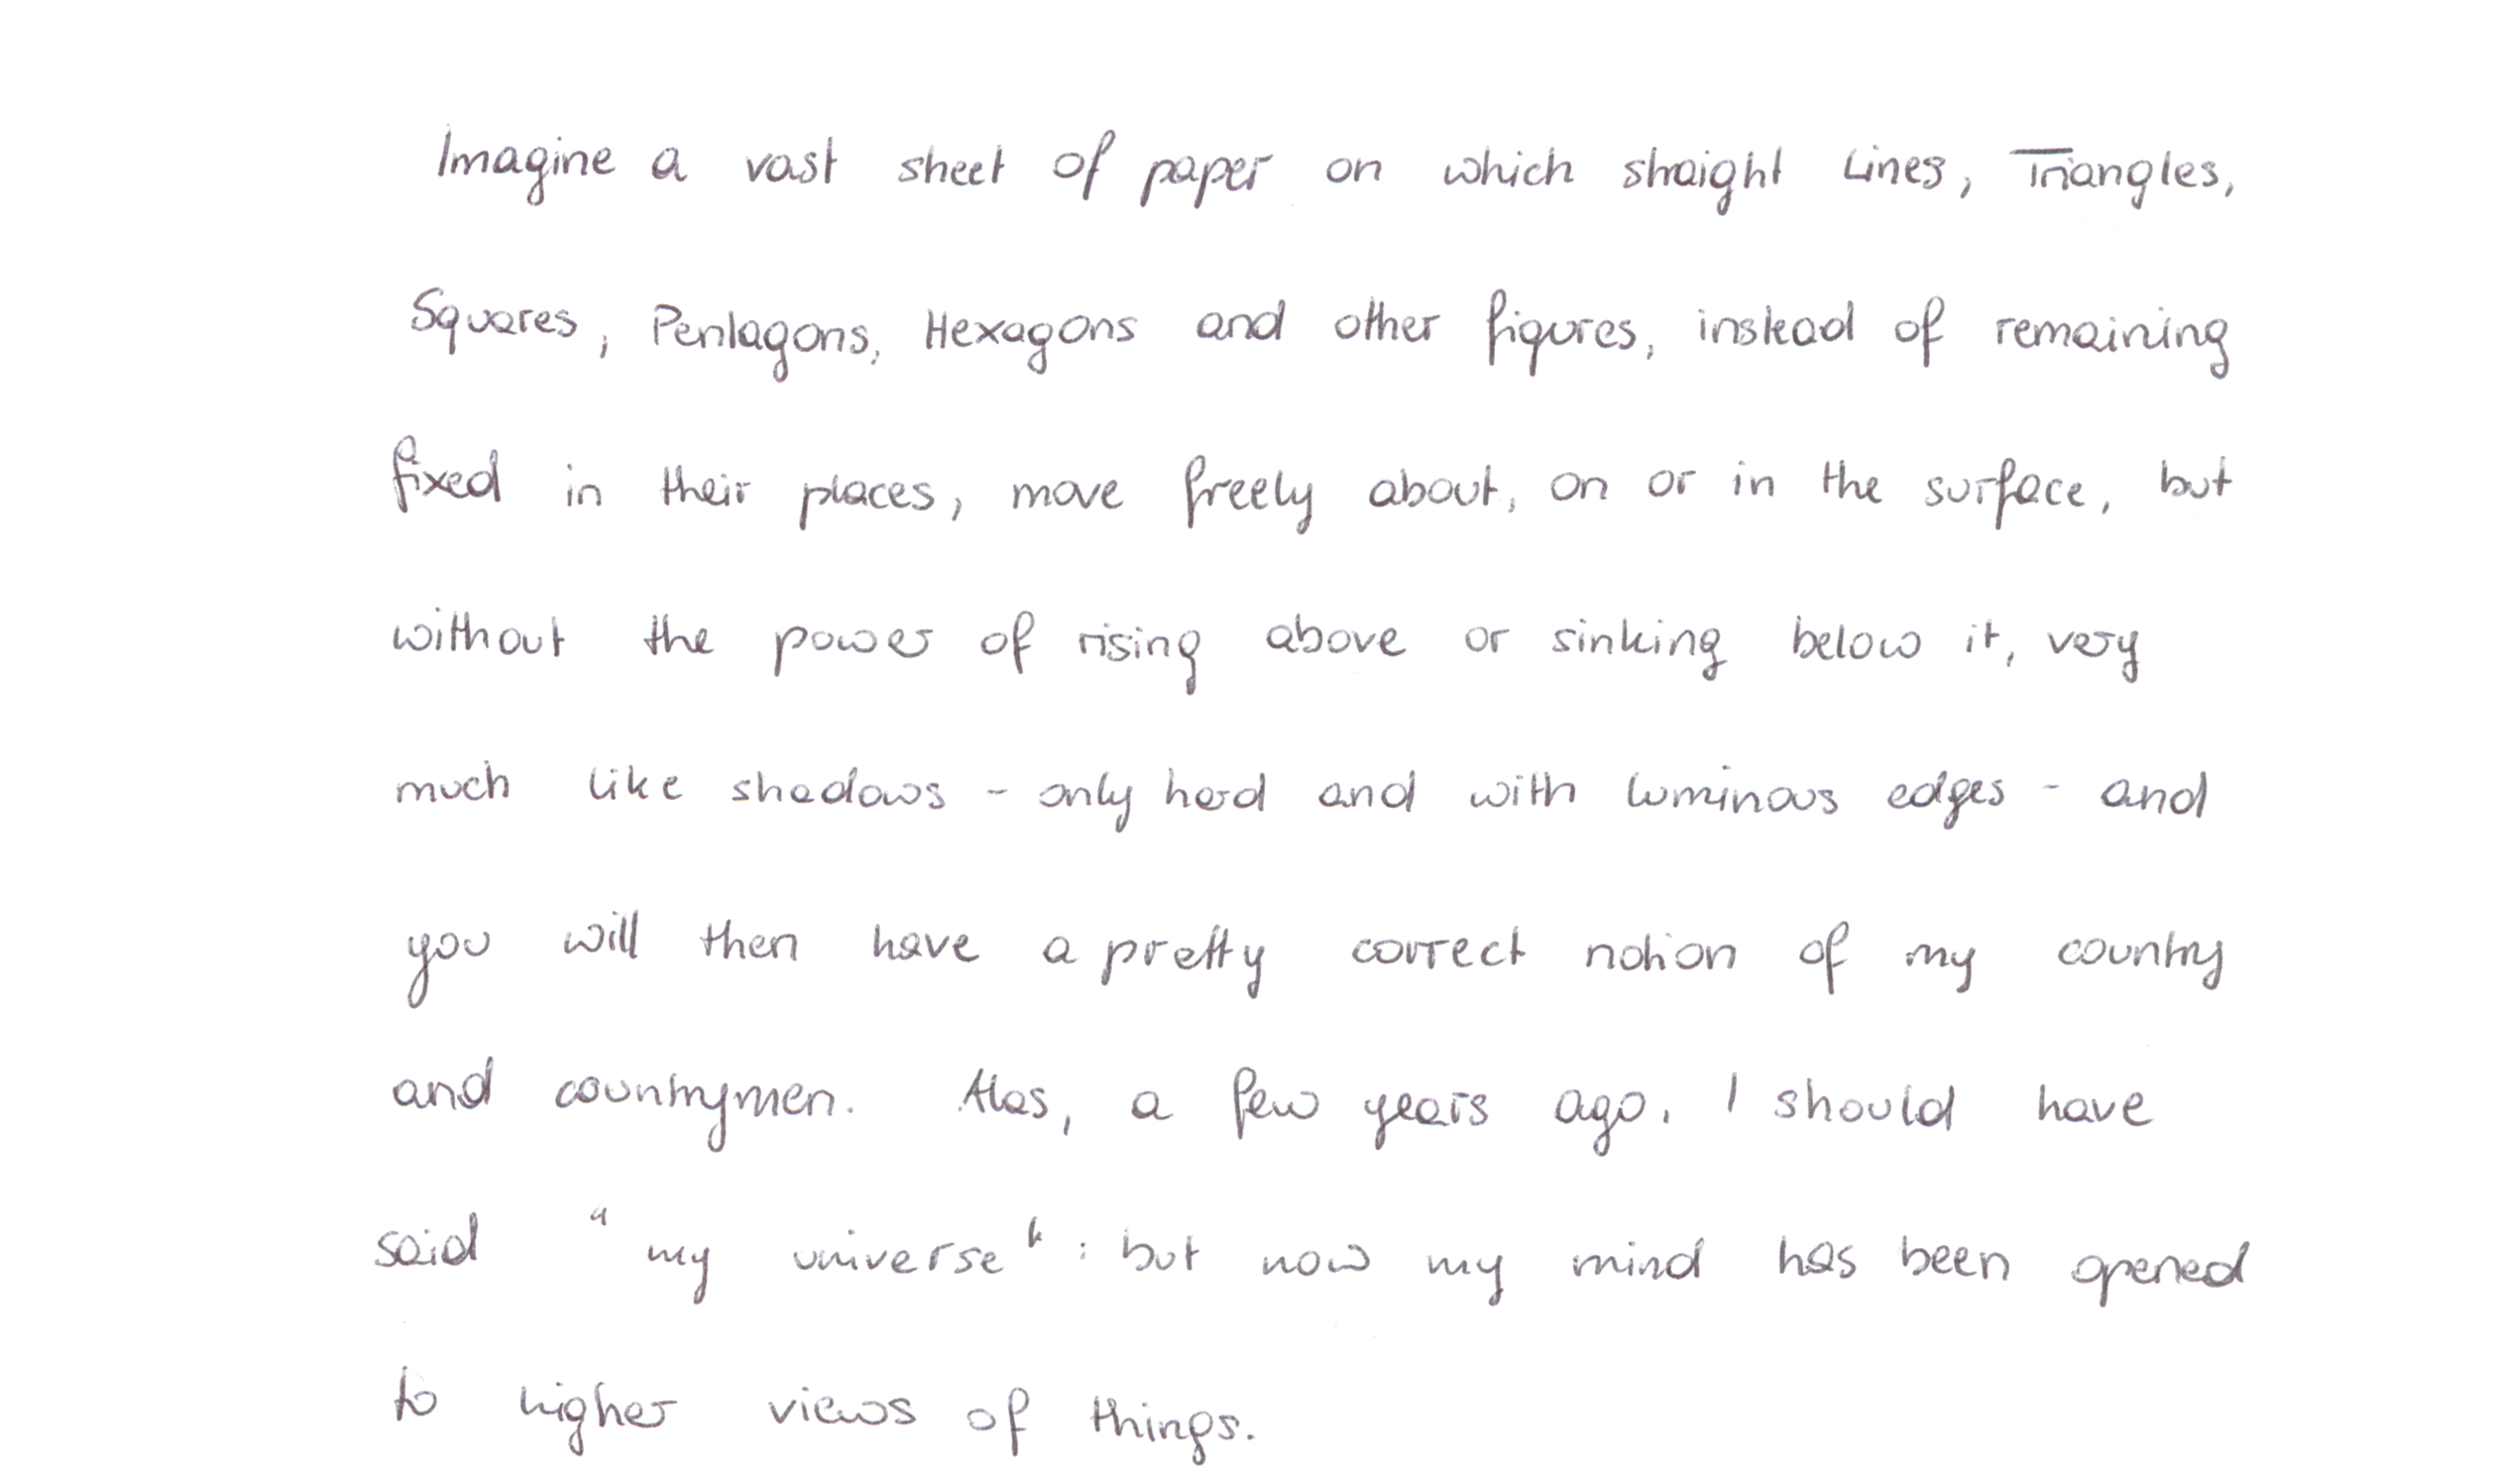 Imagine a vast sheet of paper on which straight Lines, Triangles,
Squares, Pentagons, Hexagons and other figures, instead of remaining
fixed in their places, move freely about, on or in the surface, but
without the power of rising above or sinking below it, very
much like shadows - only hard and with luminous edges - and
you will then have a pretty correct notion of my country
and countrymen. Alas, a few years ago, I should have
said "my universe": but now my mind has been opened
to higher views of things.